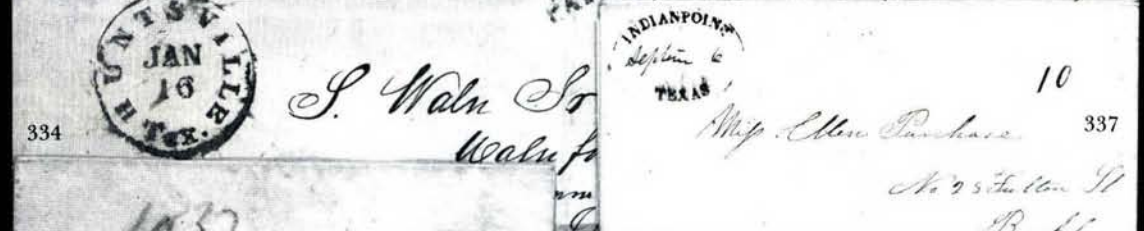 HUNTSVILLE. Tex.
JAN
16
334
S. Waln Sr
Waln fo
INDIANPOINT
Septem 6
TEXAS
10
Miss Ellen Purchase
337
No 28 Fulton St